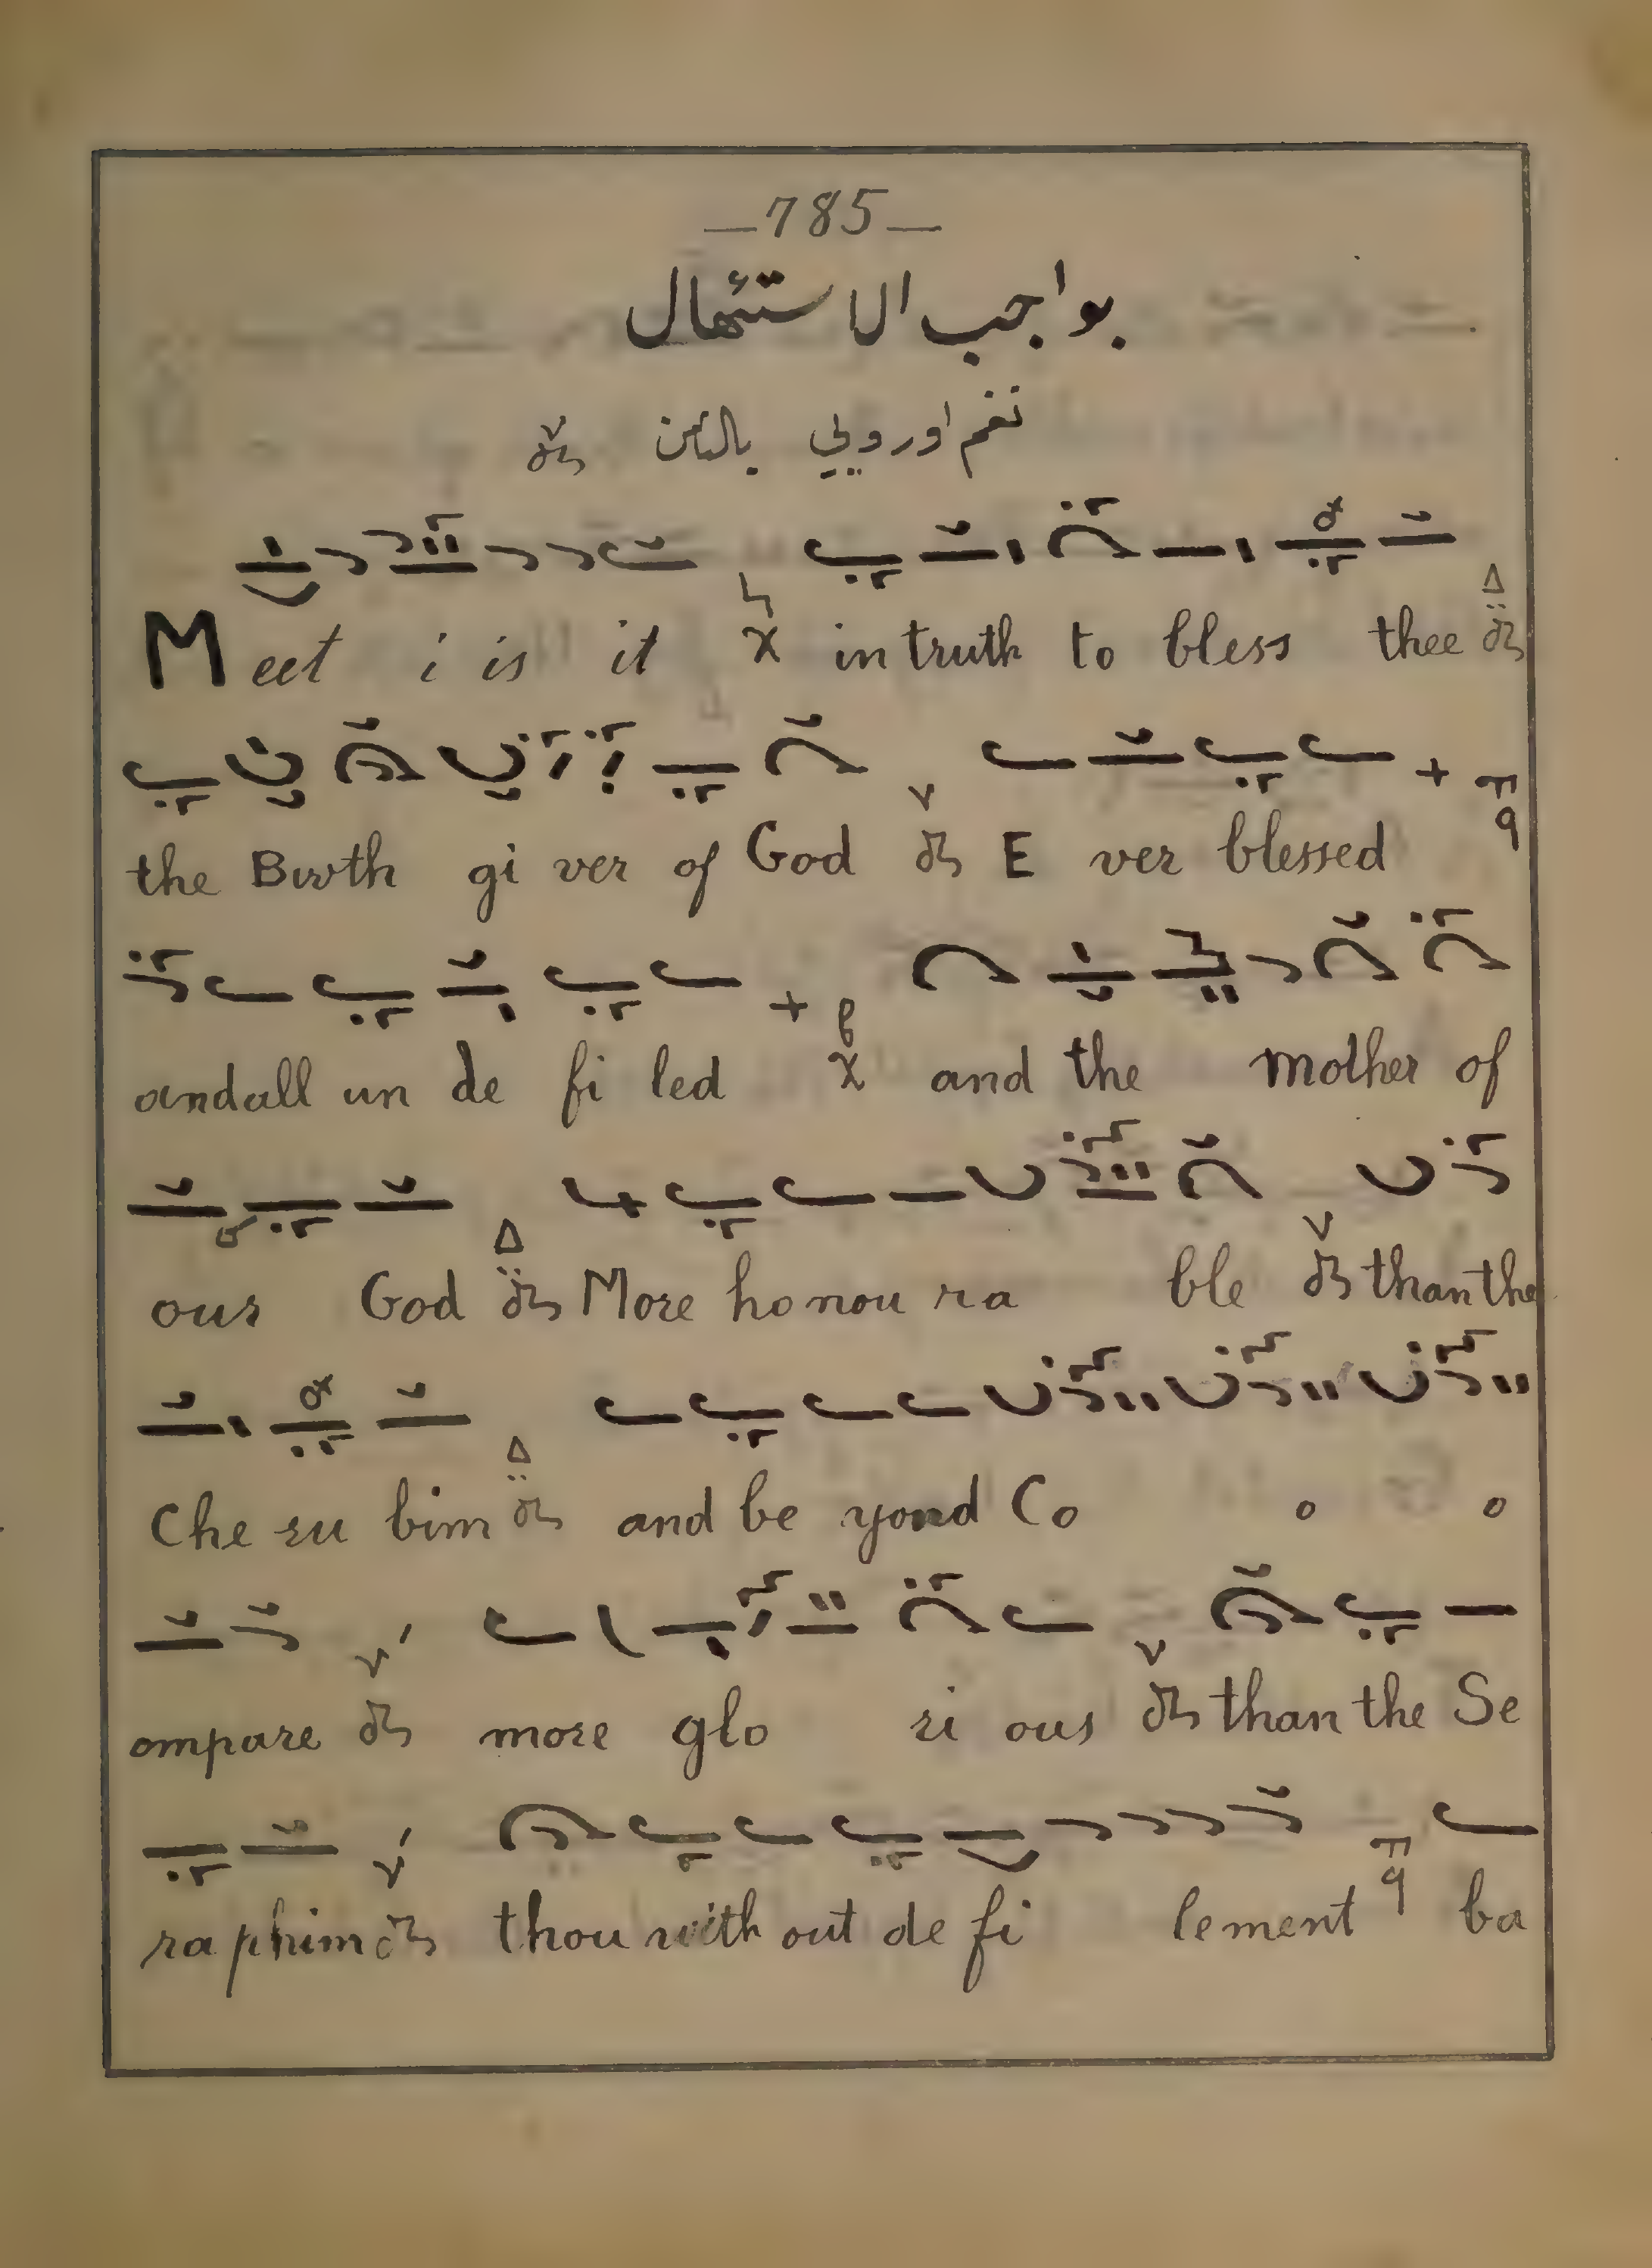 —785—
بواجب الاستئهال
نغم اوروبي بالثامن
Meet i is it in truth to bless thee
the Birth gi ver of God E ver blessed
andall un de fi led and the mother of
our God More honou ra ble than the
Che ru bim and be yond Co o o
ompare more glo ri ous than the Se
ra phim thou with out de fi lement ba